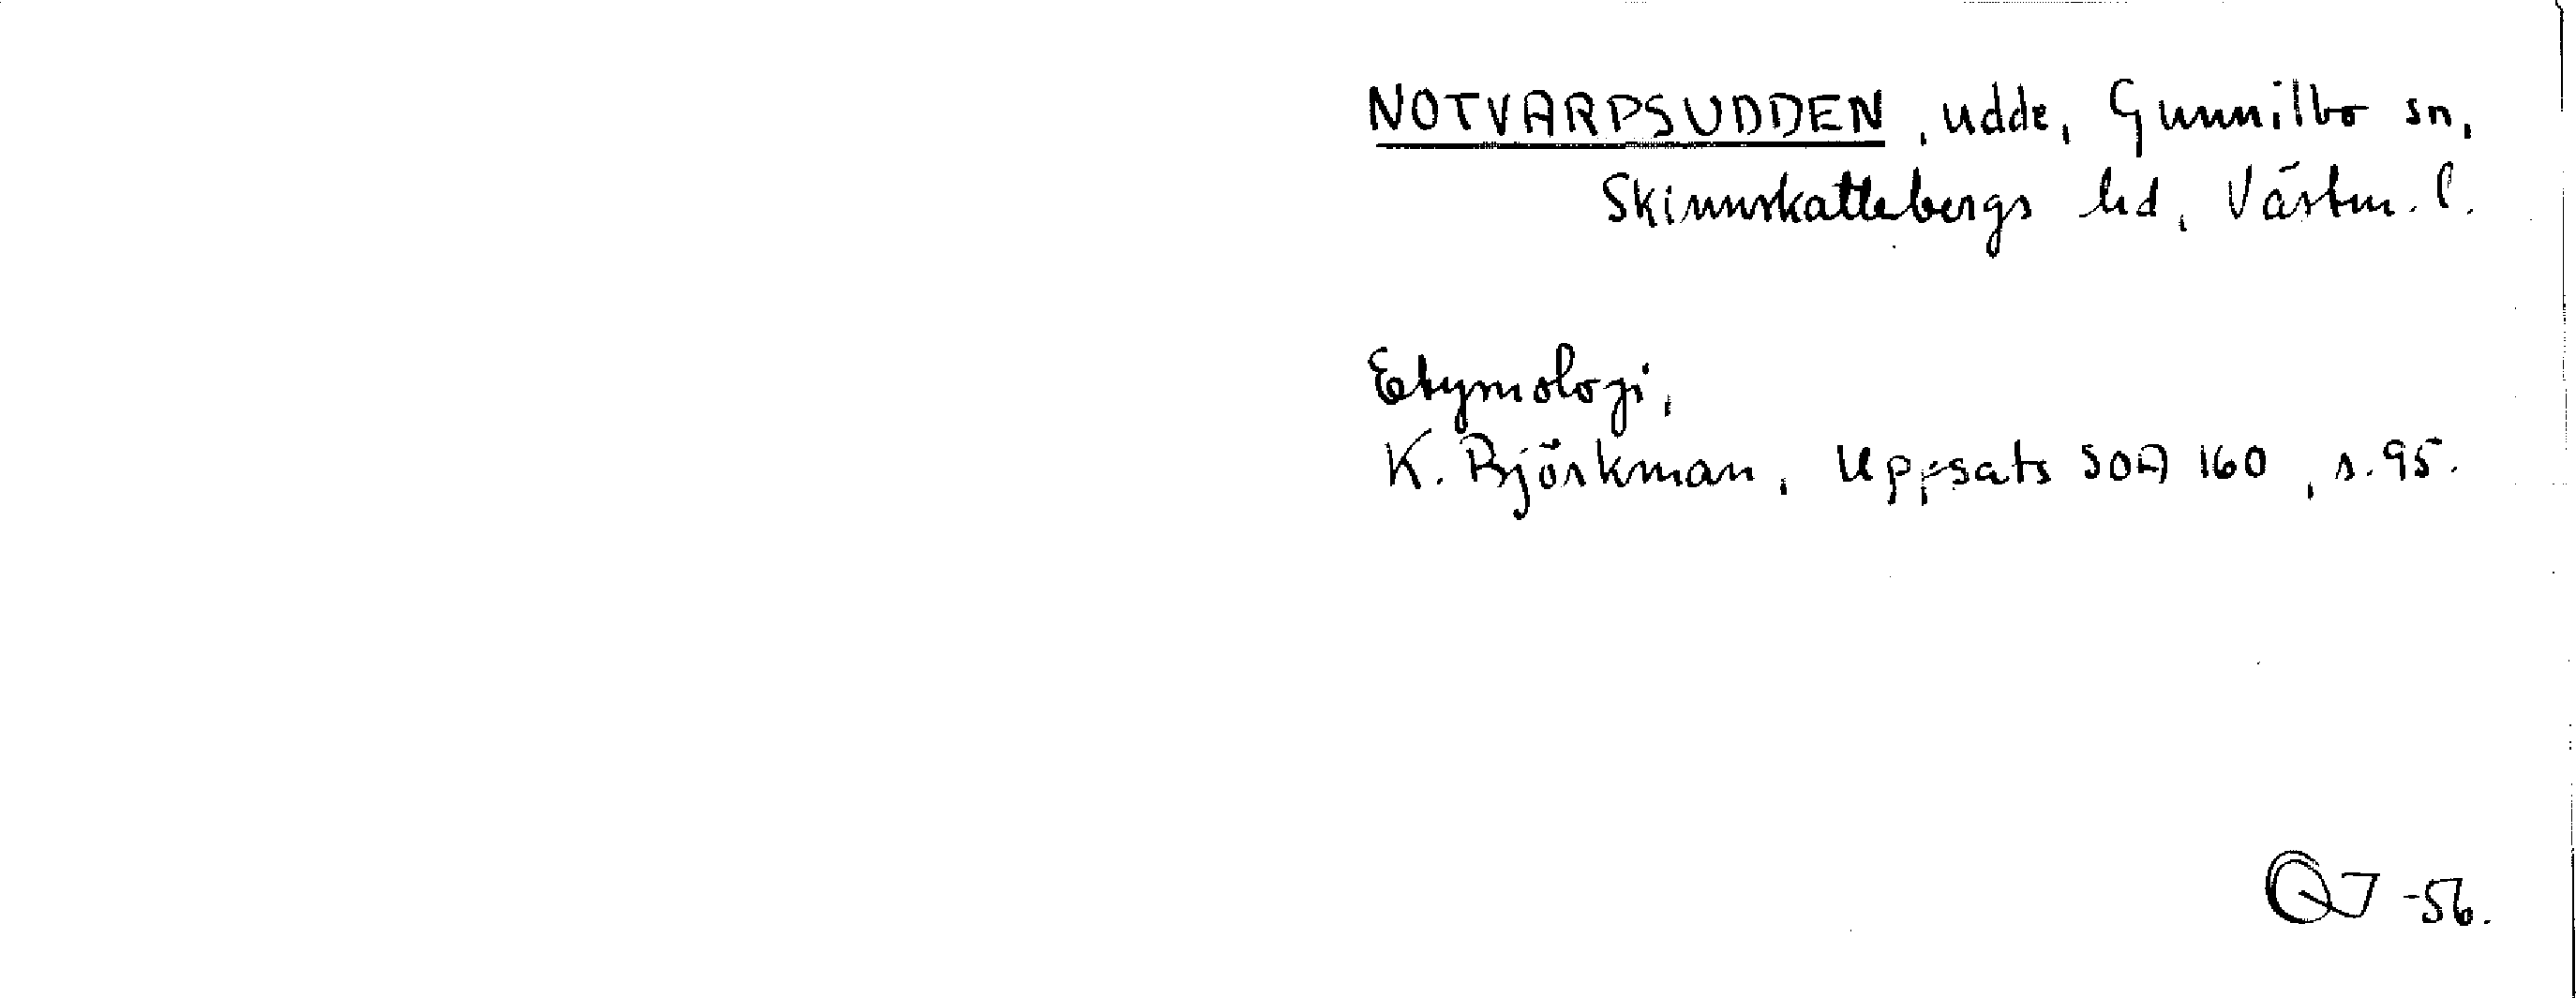 NOTVARPSUDDEN, udde, Gunnilbo sn,
Skinnskattebergs hd, Västm. l.
Etymologi,
K. Björkman, Uppsats SOA 160, s. 95.
QJ -56.